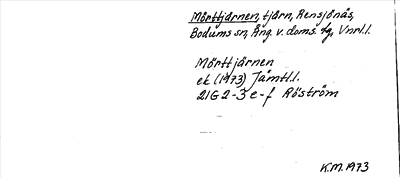 Mörttjärnen, tjärn, Rensjönäs,
Bodums sn, Ång. v. doms. fg, Vnrl.l.
Mörttjärnen
ek (1973) Jämtl.l.
21G 2-3 e-f Röström
K.M. 1973